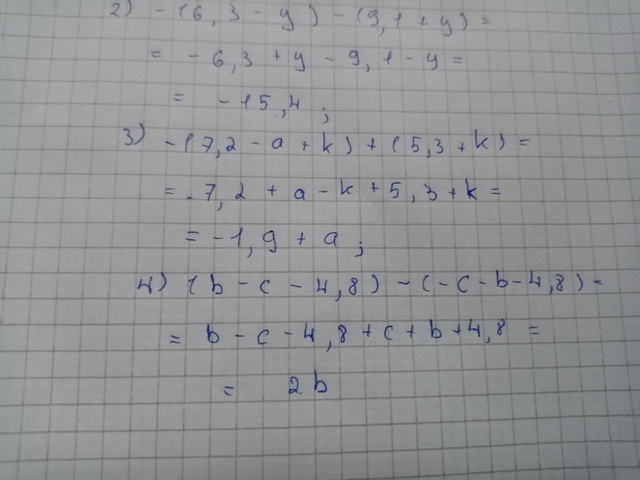 2) - (6,3 - y) - (9,1 + y) =
= - 6,3 + y - 9,1 - y =
= - 15,4 ;
3) - (7,2 - a + k) + (5,3 + k) =
= - 7,2 + a - k + 5,3 + k =
= - 1,9 + a ;
4) (b - c - 4,8) - (- c - b - 4,8) =
= b - c - 4,8 + c + b + 4,8 =
= 2b